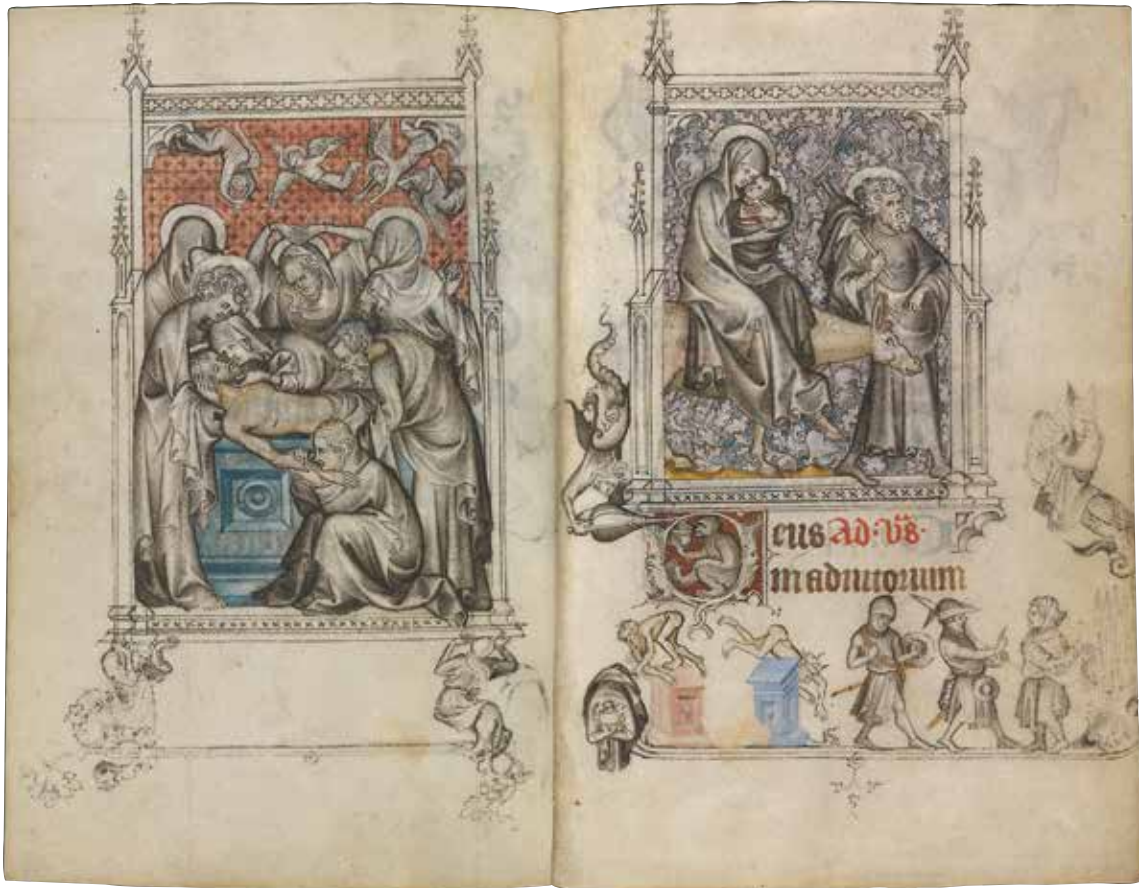 eus Ad·v̄s·
in adiutorium